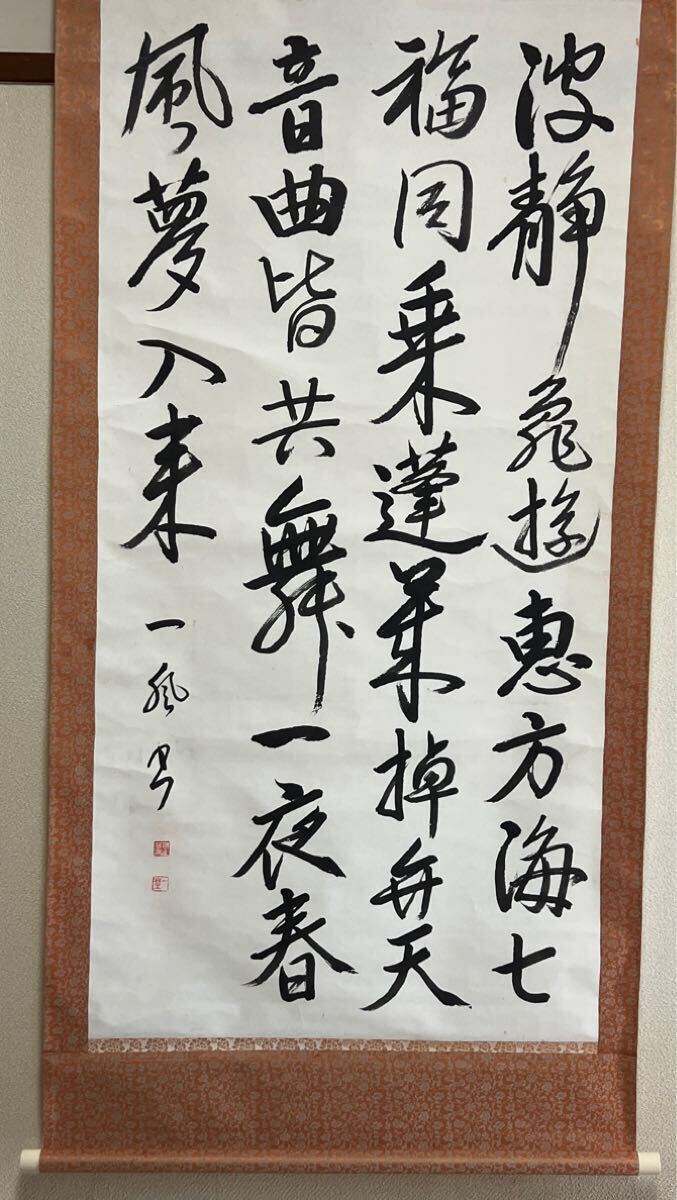 波静亀遊恵方海七
福同乗蓬莱棹弁天
音曲皆共舞一夜春
風夢入来
一風書